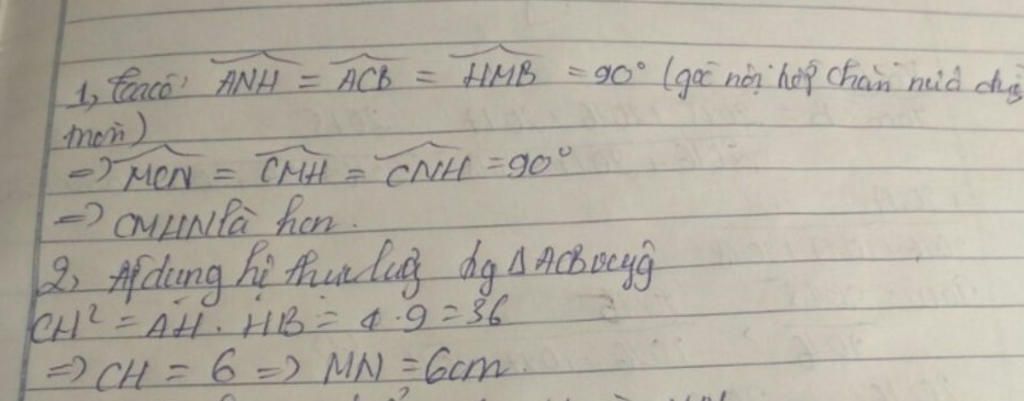 1, taco: ANH = ACB = HMB = 90° (góc nội tiếp chắn nửa đg
tròn)
=> MCN = CMH = CNH = 90°
=> CMHN là hcn.
2, Áp dụng hệ thức lượng ΔACB
CH² = AH. HB = 4.9 = 36
=> CH = 6 => MN = 6cm